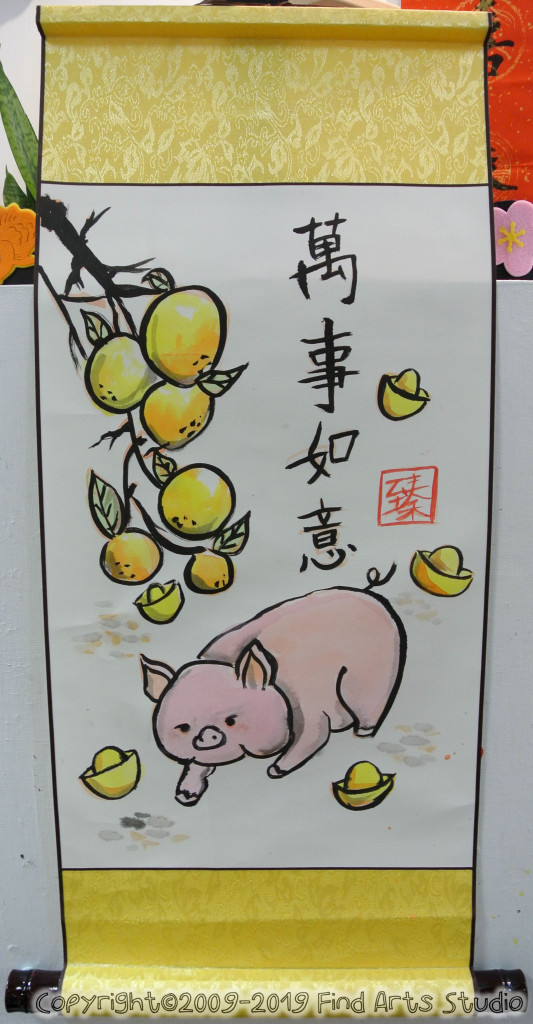 萬事如意
Copyright©2009-2019 Find Arts Studio